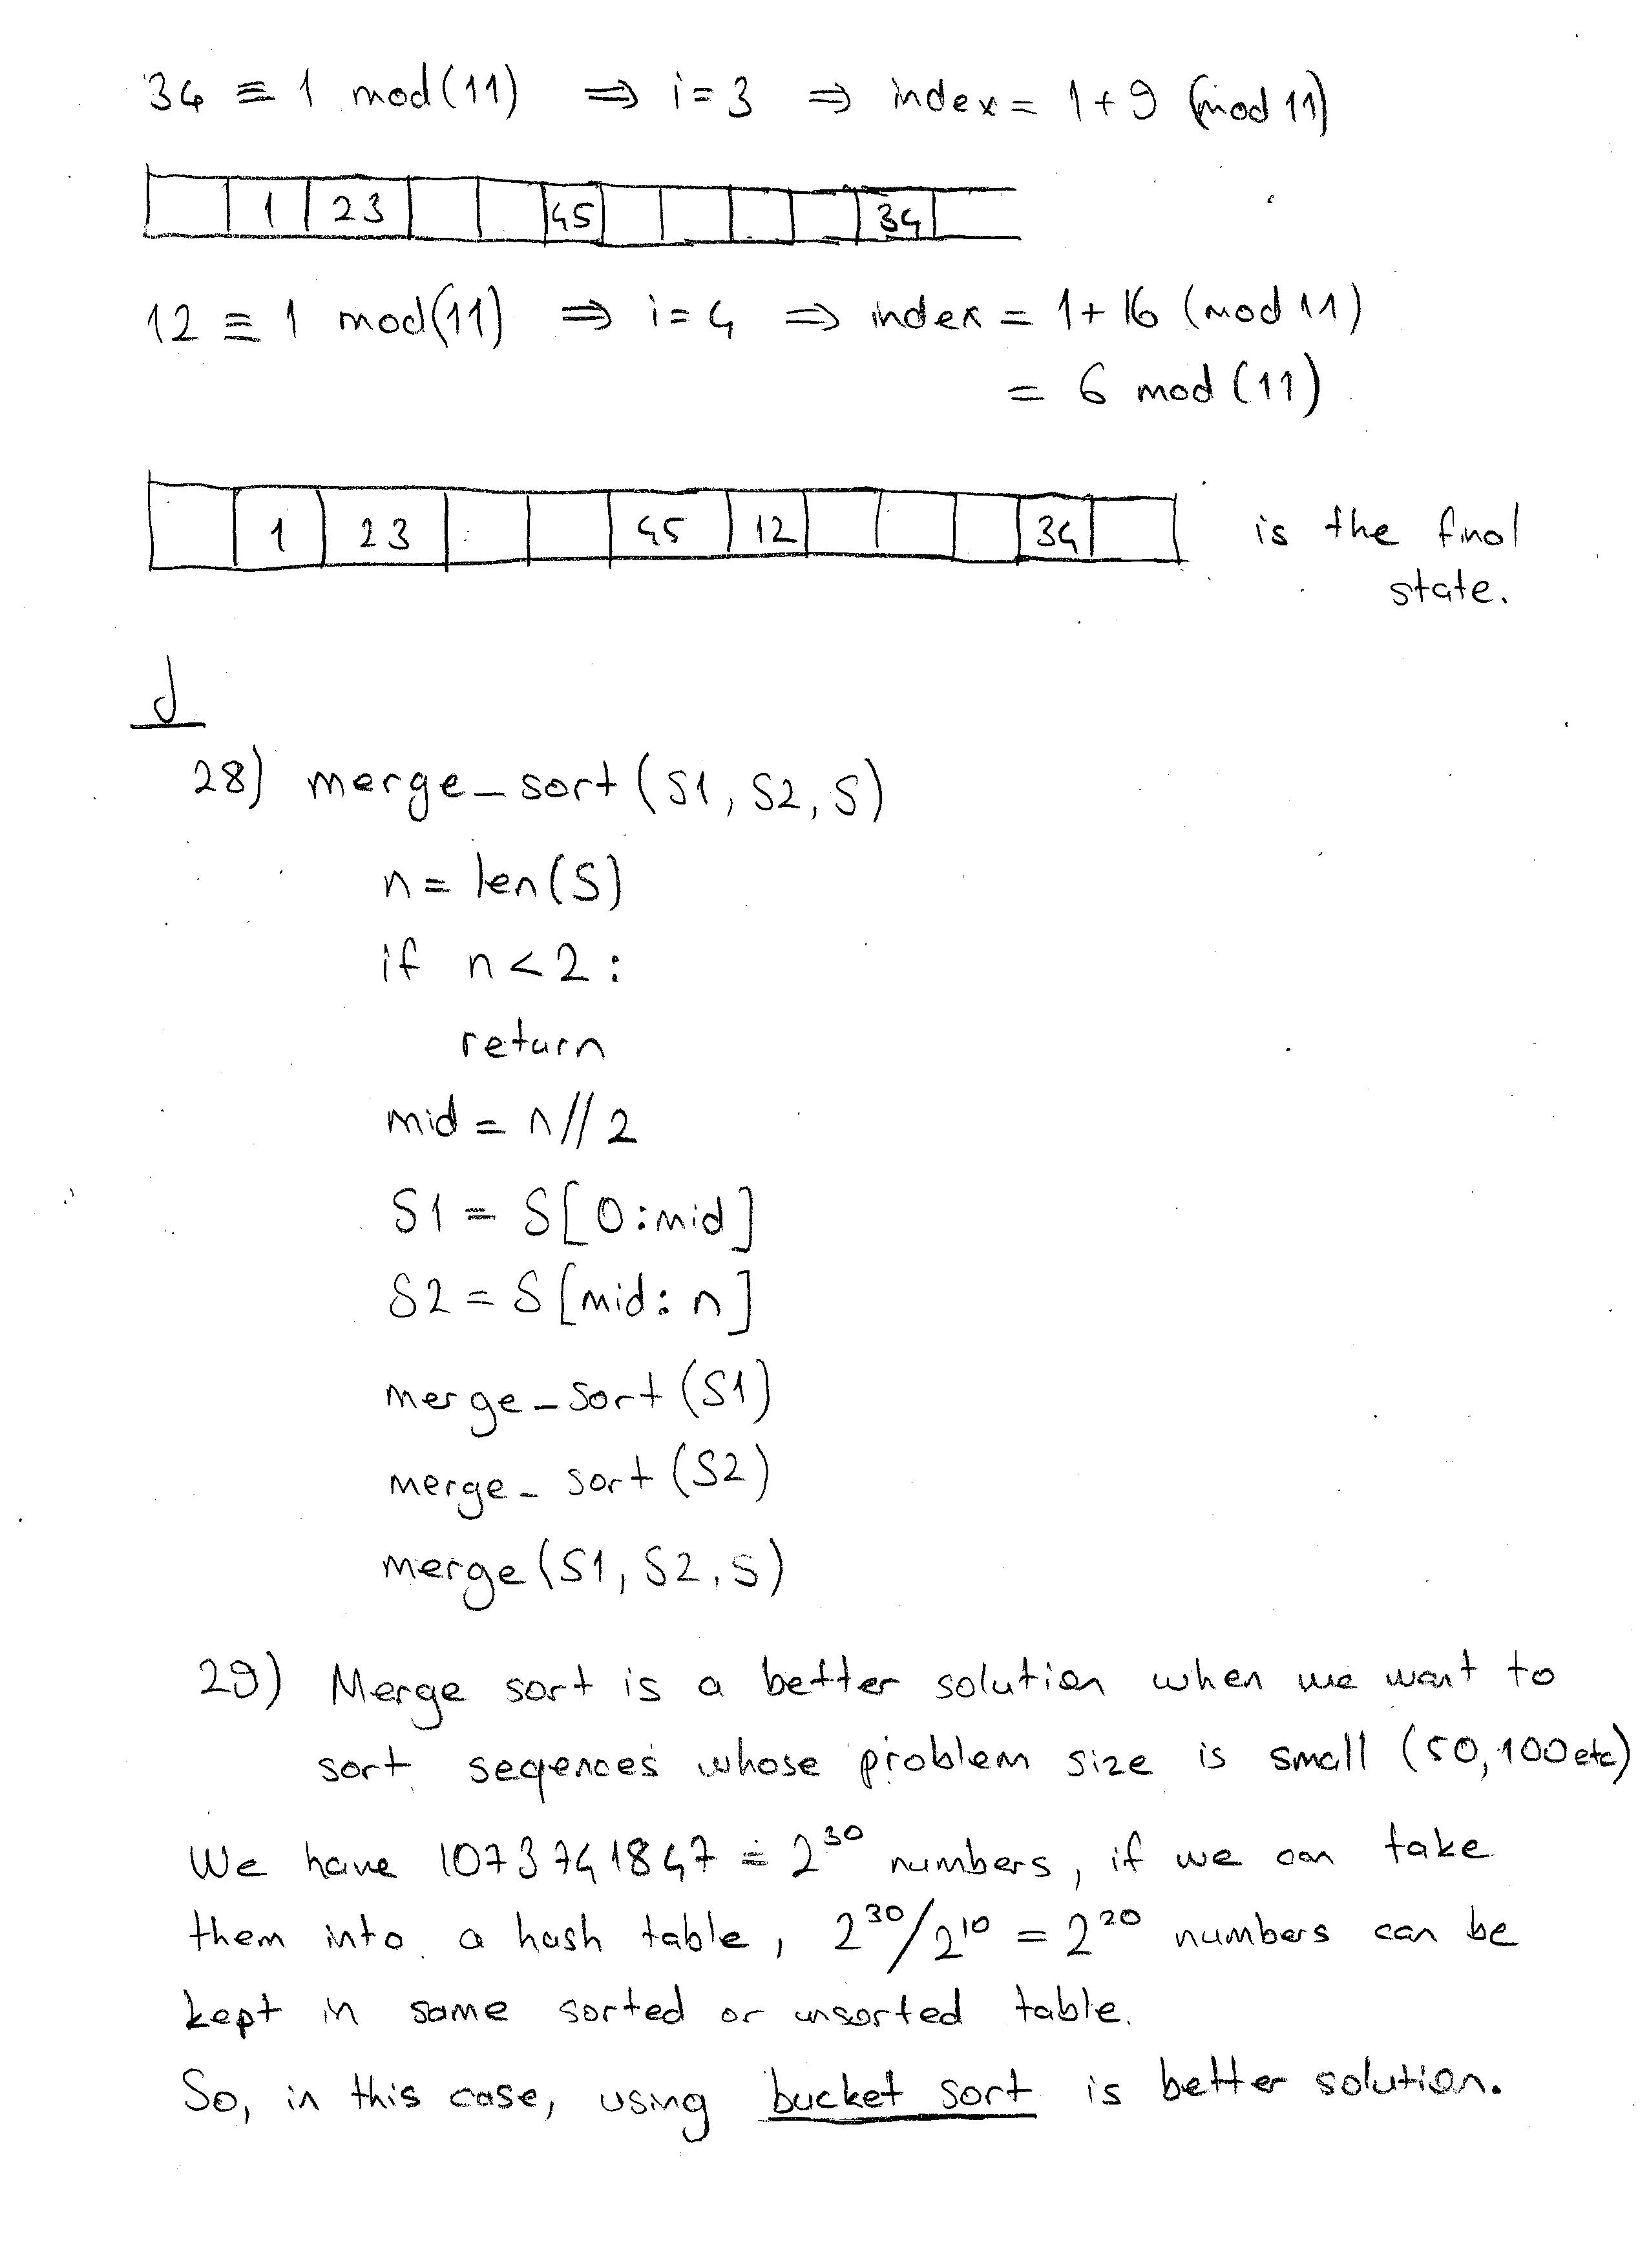 34 ≡ 1 mod(11) ⇒ i=3 ⇒ index = 1+9 (mod 11)
1 23 45 34
12 ≡ 1 mod(11) ⇒ i=4 ⇒ index = 1+16 (mod 11)
= 6 mod (11)
1 23 45 12 34 is the final
state.
d
28) merge_sort(S1, S2, S)
n = len(S)
if n<2:
return
mid = n//2
S1 = S[0:mid]
S2 = S[mid:n]
merge_sort(S1)
merge_sort(S2)
merge(S1, S2, S)
29) Merge sort is a better solution when we want to
sort seqences whose problem size is small (50, 100 etc)
We have 1073741847 ≐ 2^30 numbers, if we can take
them into a hash table, 2^30/2^10 = 2^20 numbers can be
kept in same sorted or unsorted table.
So, in this case, using bucket sort is better solution.